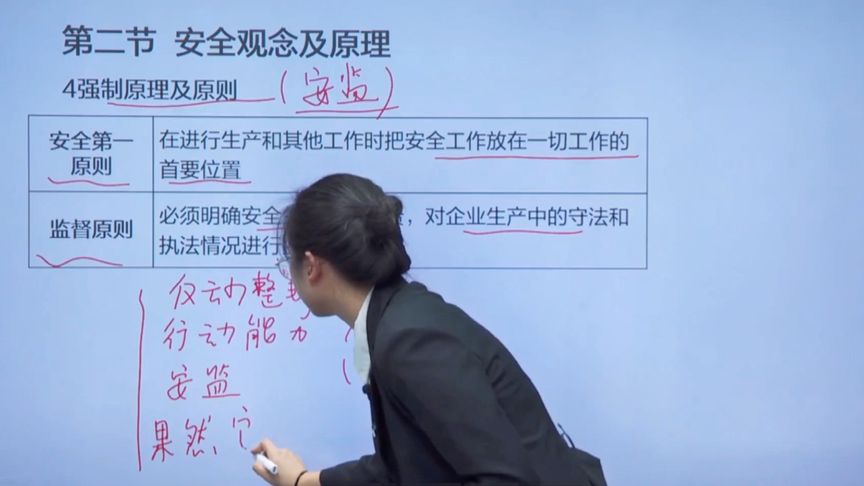 第二节 安全观念及原理
4强制原理及原则 (安监)
安全第一原则
在进行生产和其他工作时把安全工作放在一切工作的
首要位置
监督原则
必须明确安全 ，对企业生产中的守法和
执法情况进行
仅动整
行动能力
安监
果然、